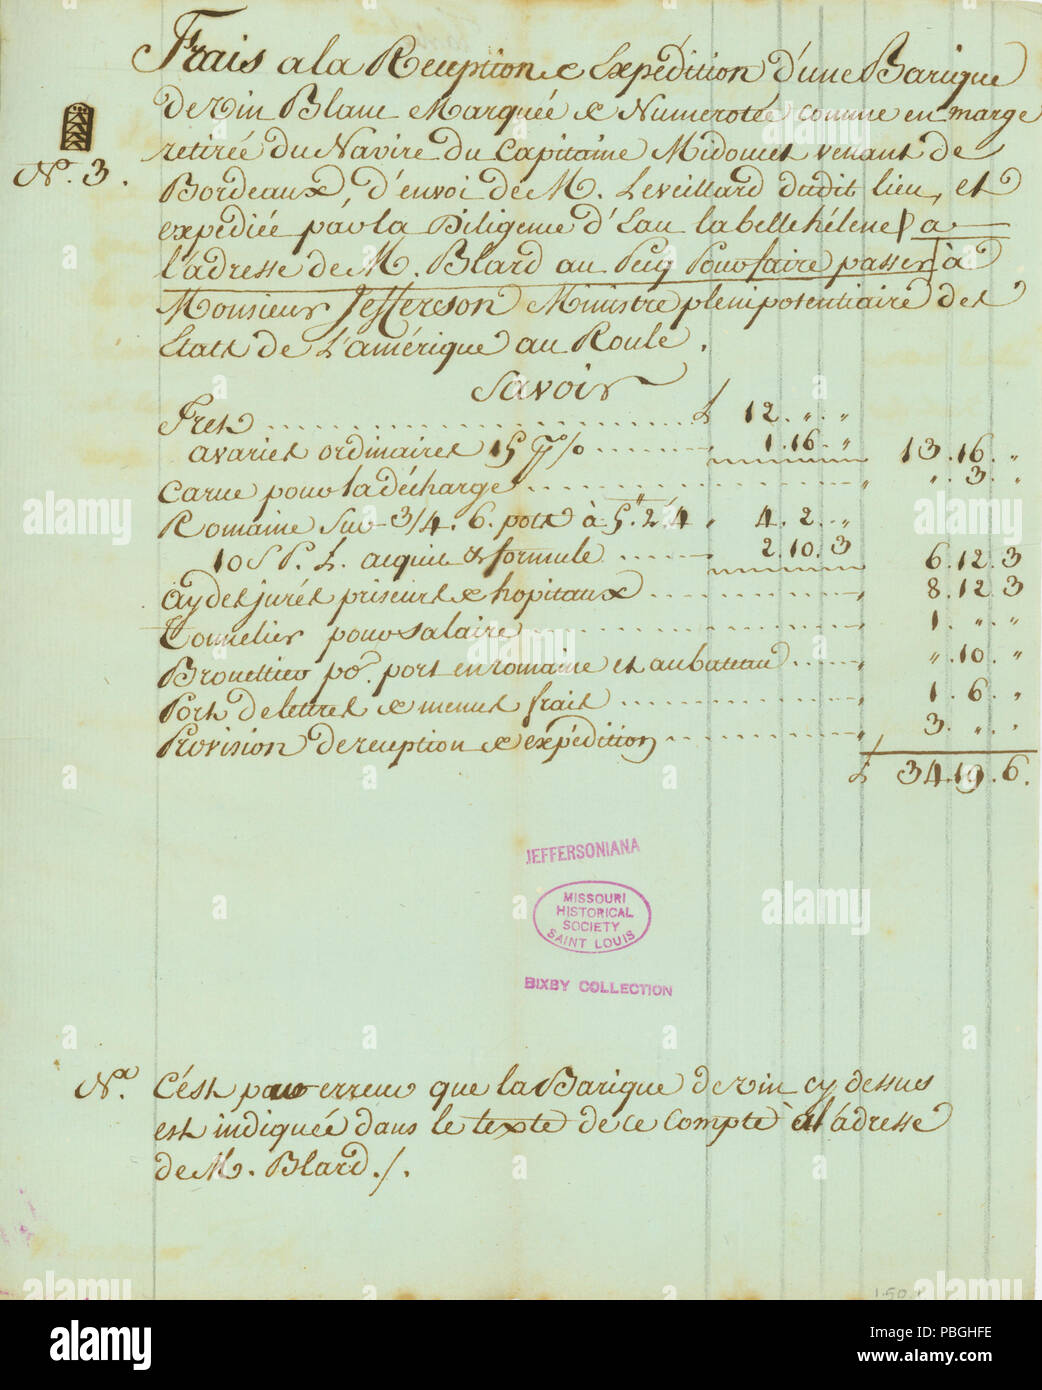 Frais a la Reception & Expédition d'une Barique
de vin Blanc Marquée & Numerotée comme en marge
N.° 3.
retirée du Navire du Capitaine Midouet venant de
Bordeaux, d'envoi de M. Leveillard dudit lieu, et
expédiée par la Diligence d'Eau la belle hélene p a
l'adresse de M. Blard au Pecq Pour faire passer à
Monsieur Jefferson Ministre plenipotentiaire des
Etats de L'amérique au Roule.
Savoir
Fret . . . £ 12. " . "
avaries ordinaires 15 p% . . . " 1.16. " 13.16. "
Carue pour la décharge . . . " " . 3. "
Romaine sur 3/4. 6. pots à 5". 2. 4 " 4. 2. "
10 S P. £. acquit & formule . . . 2.10.3 6.12.3
ay des jurés priseurs & hopitaux . . . " 8.12.3
Tonnelier pour salaire . . . " 1. " . "
Brouettier po.r port en romaine et au bateau . . . " " .10. "
Port de lettres & menus frais . . . " 1. 6. "
Provision de reception & expédition . . . " 3. " . "
£ 34.19.6.
JEFFERSONIANA
MISSOURI
HISTORICAL
SOCIETY
SAINT LOUIS
BIXBY COLLECTION
N.a C'ést par erreur que la Barique de vin cy dessus
est indiquée dans le texte de ce Compte à l'adresse
de M. Blard ./.
alamy
Image ID: PBGHFE
www.alamy.com